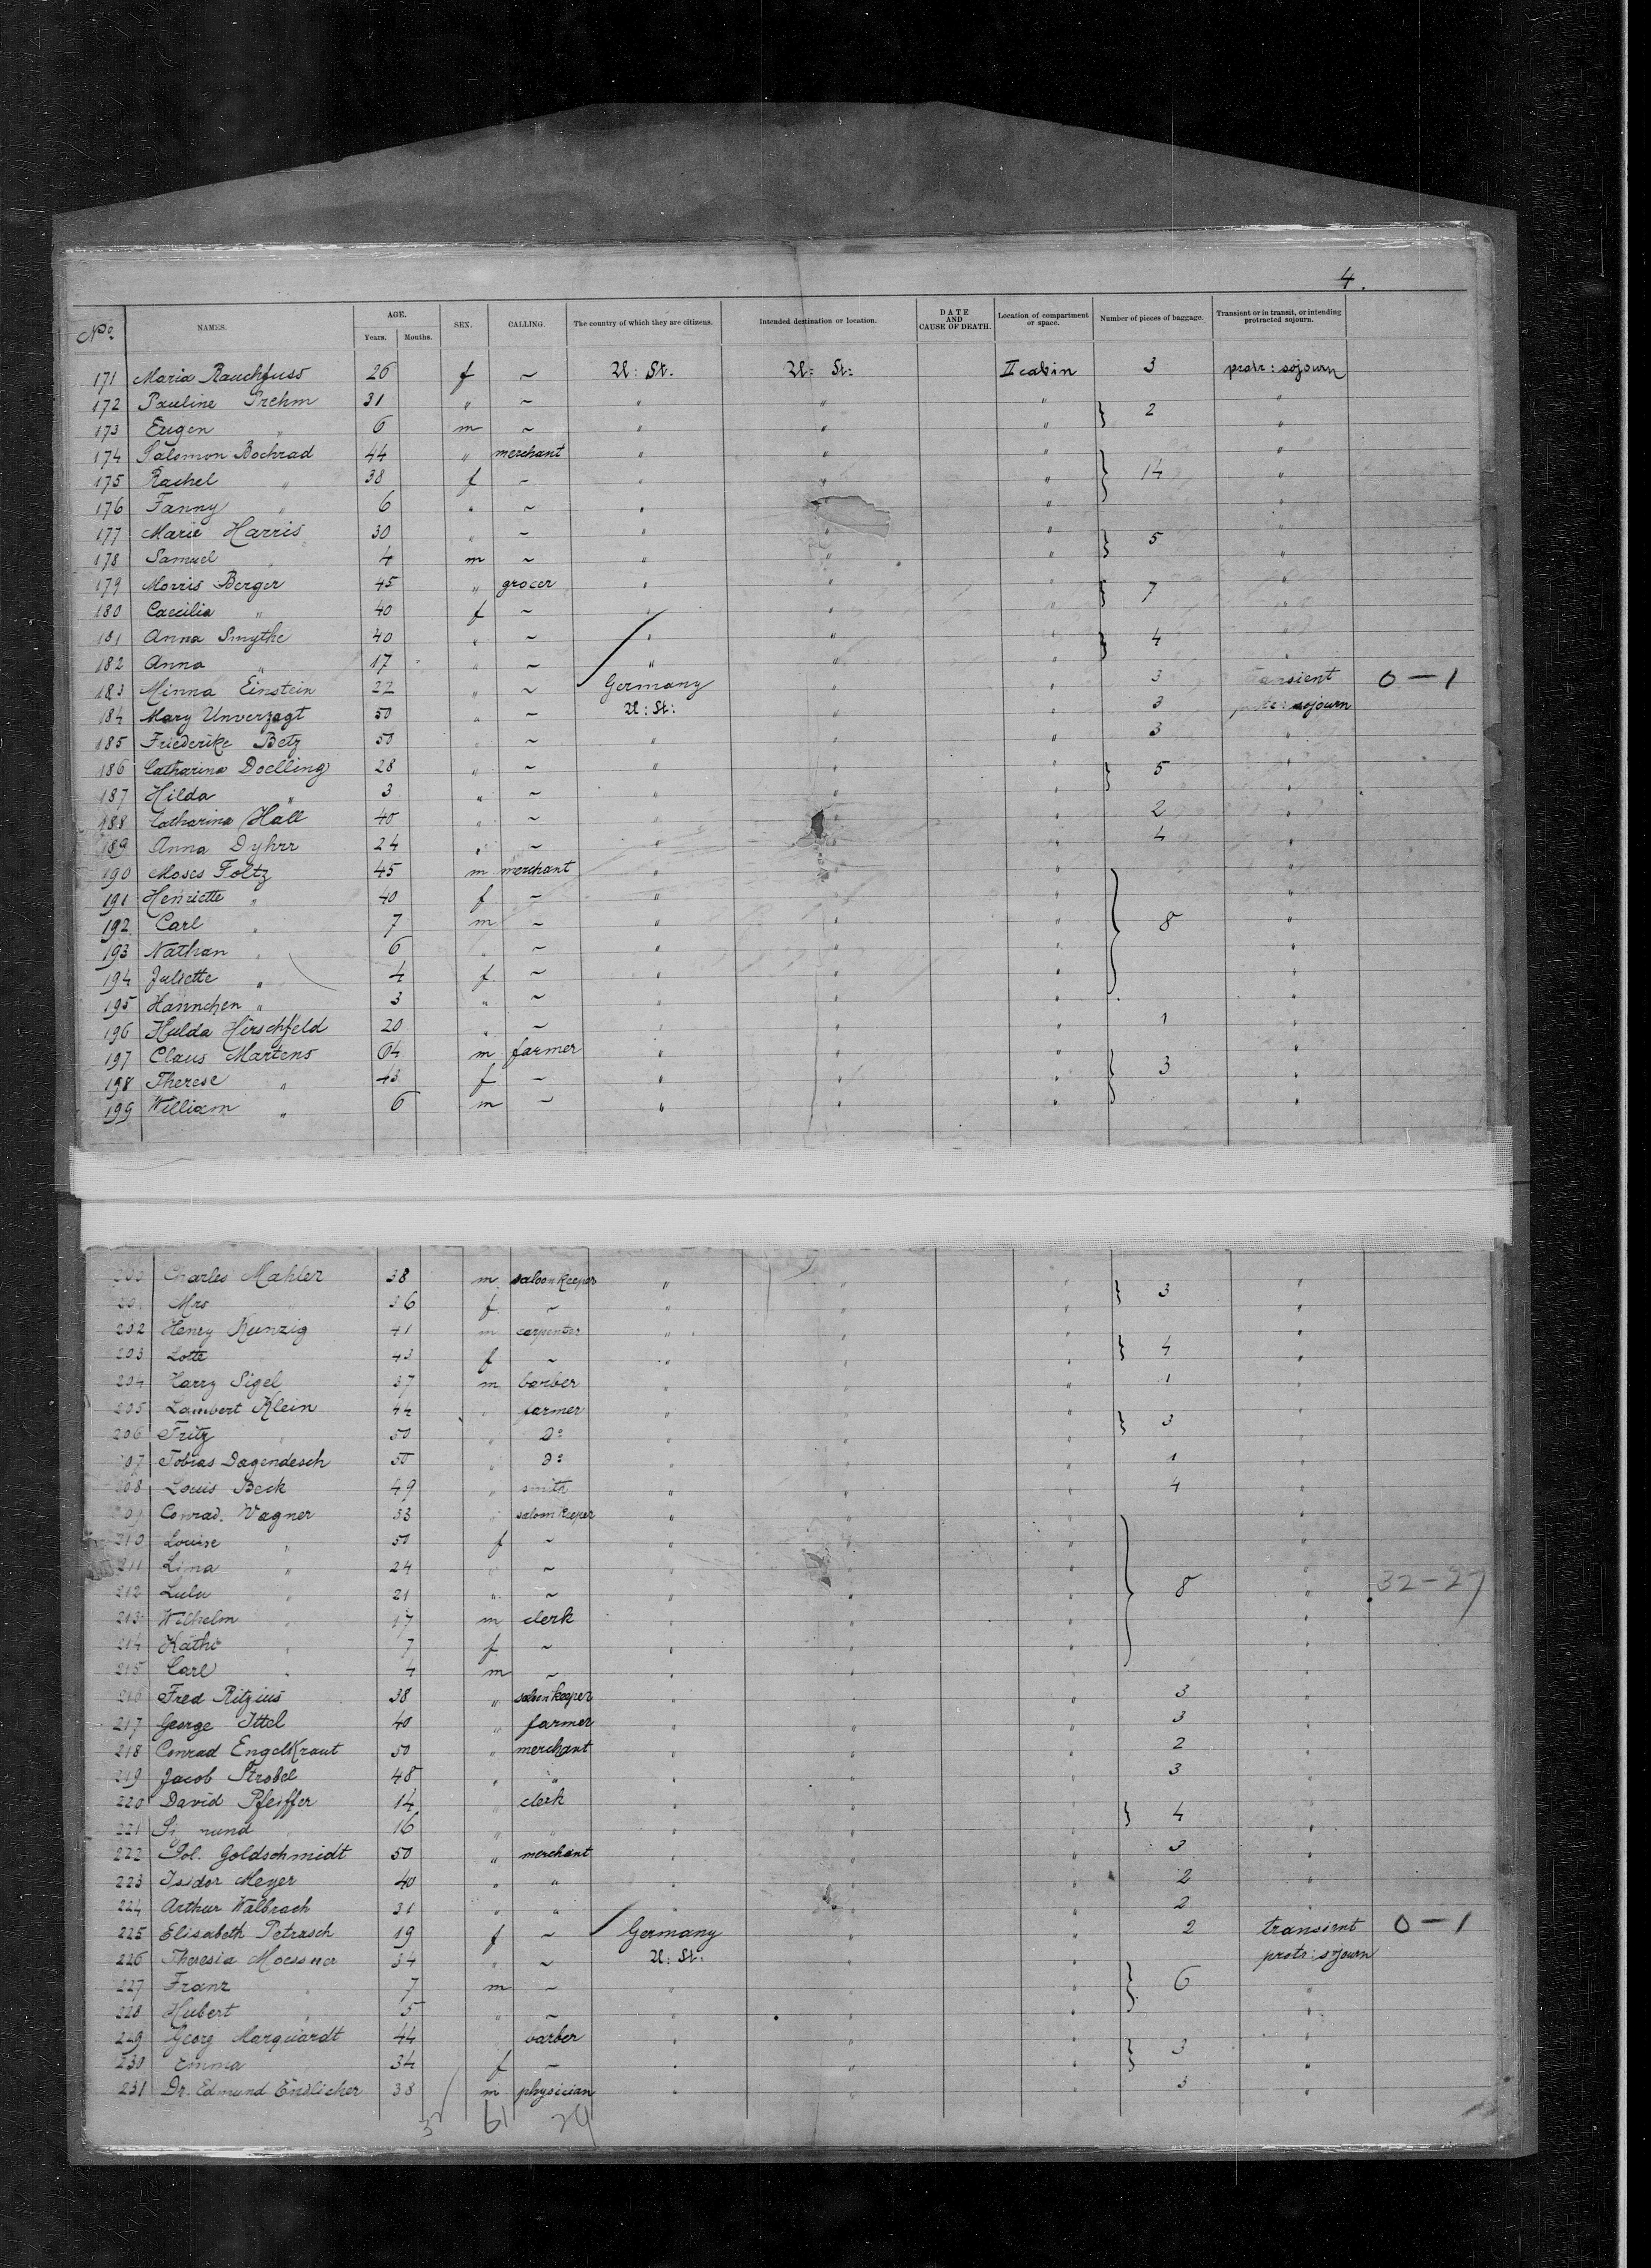 4.
No. NAMES. AGE. Years. Months. SEX. CALLING. The country of which they are citizens. Intended destination or location. DATE AND CAUSE OF DEATH. Location of compartment or space. Number of pieces of baggage. Transient or in transit, or intending protracted sojourn.
171 Maria Rauchfuss 26 f ~ U: St. U: St: II cabin 3 protr: sojourn
172 Pauline Prehm 31 " ~ " " " 2 "
173 Eugen " 6 m ~ " " " "
174 Salomon Bochrad 44 " merchant " " " 14 "
175 Rachel " 38 f ~ " " " "
176 Fanny " 6 " ~ " " "
177 Marie Harris 30 " ~ " " " 5 "
178 Samuel " 4 m ~ " " " "
179 Morris Berger 45 " grocer " " " 7 "
180 Caecilia " 40 f ~ " " " "
181 Anna Smythe 40 " ~ " " " 4 "
182 Anna " 17 " ~ " " " "
183 Minna Einstein 22 " ~ Germany " " 3 transient 0-1
184 Mary Unverzagt 50 " ~ U: St: " " 3 protr: sojourn
185 Friederike Betz 50 " ~ " " " 3 "
186 Catharina Doelling 28 " ~ " " " 5 "
187 Hilda " 3 " ~ " " " "
188 Catharina Hall 40 " ~ " " " 2 "
189 Anna Dyhrr 24 " ~ " " " 4 "
190 Moses Foltz 45 m merchant " " " "
191 Henriette " 40 f ~ " " " "
192 Carl " 7 m ~ " " " 8 "
193 Nathan " 6 " ~ " " " "
194 Juliette " 4 f ~ " " " "
195 Hannchen " 3 " ~ " " " "
196 Hulda Hirschfeld 20 " ~ " " " 1 "
197 Claus Martens 64 m farmer " " " 3 "
198 Therese " 43 f ~ " " " "
199 William " 6 m ~ " " " "
Charles Mahler 38 m saloonkeeper " " " 3 "
Mrs " 36 f ~ " " " "
202 Henry Kunzig 41 m carpenter " " " 4 "
203 Lotte 43 f ~ " " " "
204 Harry Sigel 37 m barber " " " 1 "
205 Lambert Klein 44 " farmer " " " 3 "
206 Fritz " 50 " Do " " " "
207 Tobias Dagendesch 50 " Do " " " 1 "
208 Louis Beck 49 " smith " " " 4 "
209 Conrad. Wagner 53 " saloonkeeper " " " "
210 Louise " 50 f ~ " " " "
211 Lina " 24 " ~ " " " "
212 Lulu " 21 " ~ " " " 8 " 32-27
213 Wilhelm " 17 m clerk " " " "
214 Käthe " 7 f ~ " " " "
215 Carl " 4 m ~ " " " "
216 Fred Ritzius 38 " saloonkeeper " " " 3 "
217 George Ittel 40 " farmer " " " 3 "
218 Conrad Engelkraut 50 " merchant " " " 2 "
219 Jacob Strobel 48 " " " " " 3 "
220 David Pfeiffer 14 " clerk " " " 4 "
221 " 16 " " " " " "
222 Sol. Goldschmidt 50 " merchant " " " 3 "
223 Isidor Meyer 40 " " " " " 2 "
224 Arthur Walbrach 31 " " " " " 2 "
225 Elisabeth Petrasch 19 f ~ Germany " " 2 transient 0-1
226 Theresia Moessner 34 " ~ U: St: " " protr: sojourn
227 Franz " 7 m ~ " " " 6 "
228 Hubert " 5 " ~ " " " "
229 Georg Marquardt 44 barber " " " 3 "
230 Emma " 34 f ~ " " " "
231 Dr. Edmund Endlicher 38 m physician " " " 3 "
61 29